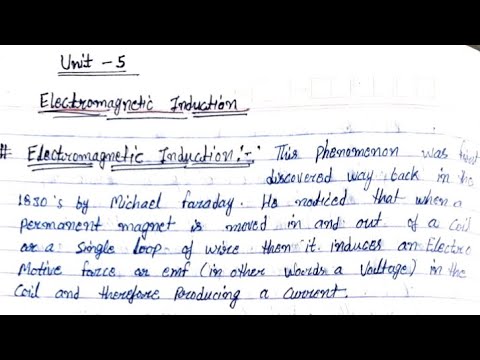 Unit - 5
Electromagnetic Induction
# Electromagnetic Induction :- This phenomenon was first
discovered way back in the
1830's by Michael faraday. He noticed that when a
permanent magnet is moved in and out of a Coil
or a single loop of wire then it induces an Electro
Motive force or emf (in other words a Voltage) in the
Coil and therefore Producing a Current.